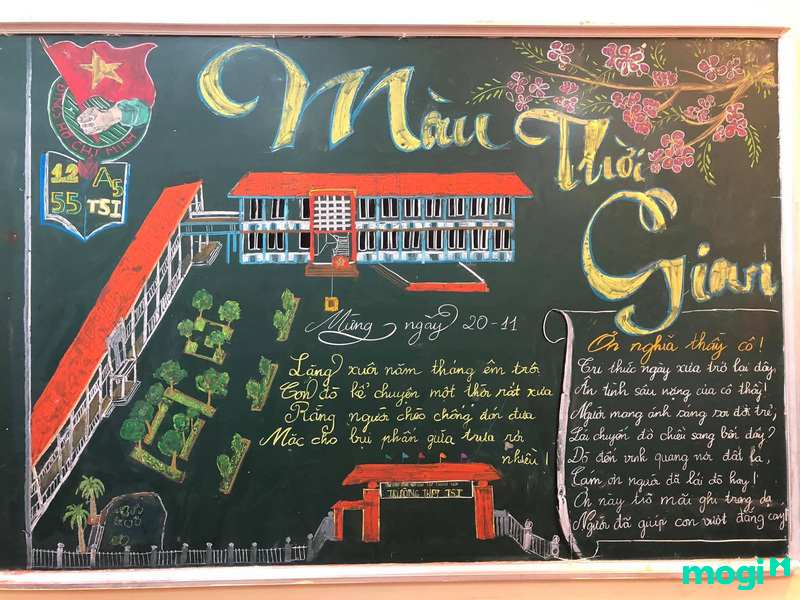 Màu Thời Gian
ĐOÀN TNCS HỒ CHÍ MINH
12 A5
55 TSI
Mừng ngày 20-11
Lặng xuôi năm tháng êm trôi
Con đò kể chuyện một thời rất xưa
Rằng người chèo chống đón đưa
Mặc cho bụi phấn giữa trưa rơi
nhiều!
Ơn nghĩa thầy cô!
Tri thức ngày xưa trở lại đây,
Ân tình sâu nặng của cô thầy!
Người mang ánh sáng soi đời trẻ,
Lái chuyến đò chiều sang bến đầy?
Dò đến vinh quang nơi đất lạ,
Cám ơn người đã lái đò hay!
Ơn này trò mãi ghi trong dạ
Người đã giúp con vượt đắng cay!
TRƯỜNG THPT TSI
mogi